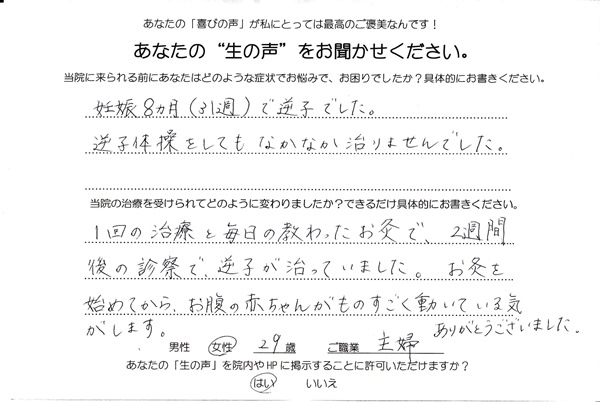 あなたの「喜びの声」が私にとっては最高のご褒美なんです！
あなたの“生の声”をお聞かせください。
当院に来られる前にあなたはどのような症状でお悩みで、お困りでしたか？具体的にお書きください。
妊娠8ヵ月(31週)で逆子でした。
逆子体操をしてもなかなか治りませんでした。
当院の治療を受けられてどのように変わりましたか？できるだけ具体的にお書きください。
1回の治療と毎日の教わったお灸で、2週間
後の診察で、逆子が治っていました。 お灸を
始めてから、お腹の赤ちゃんがものすごく動いている気
がします。 ありがとうございました。
男性 女性 29歳 ご職業 主婦
あなたの「生の声」を院内やHPに掲示することに許可いただけますか？
はい いいえ